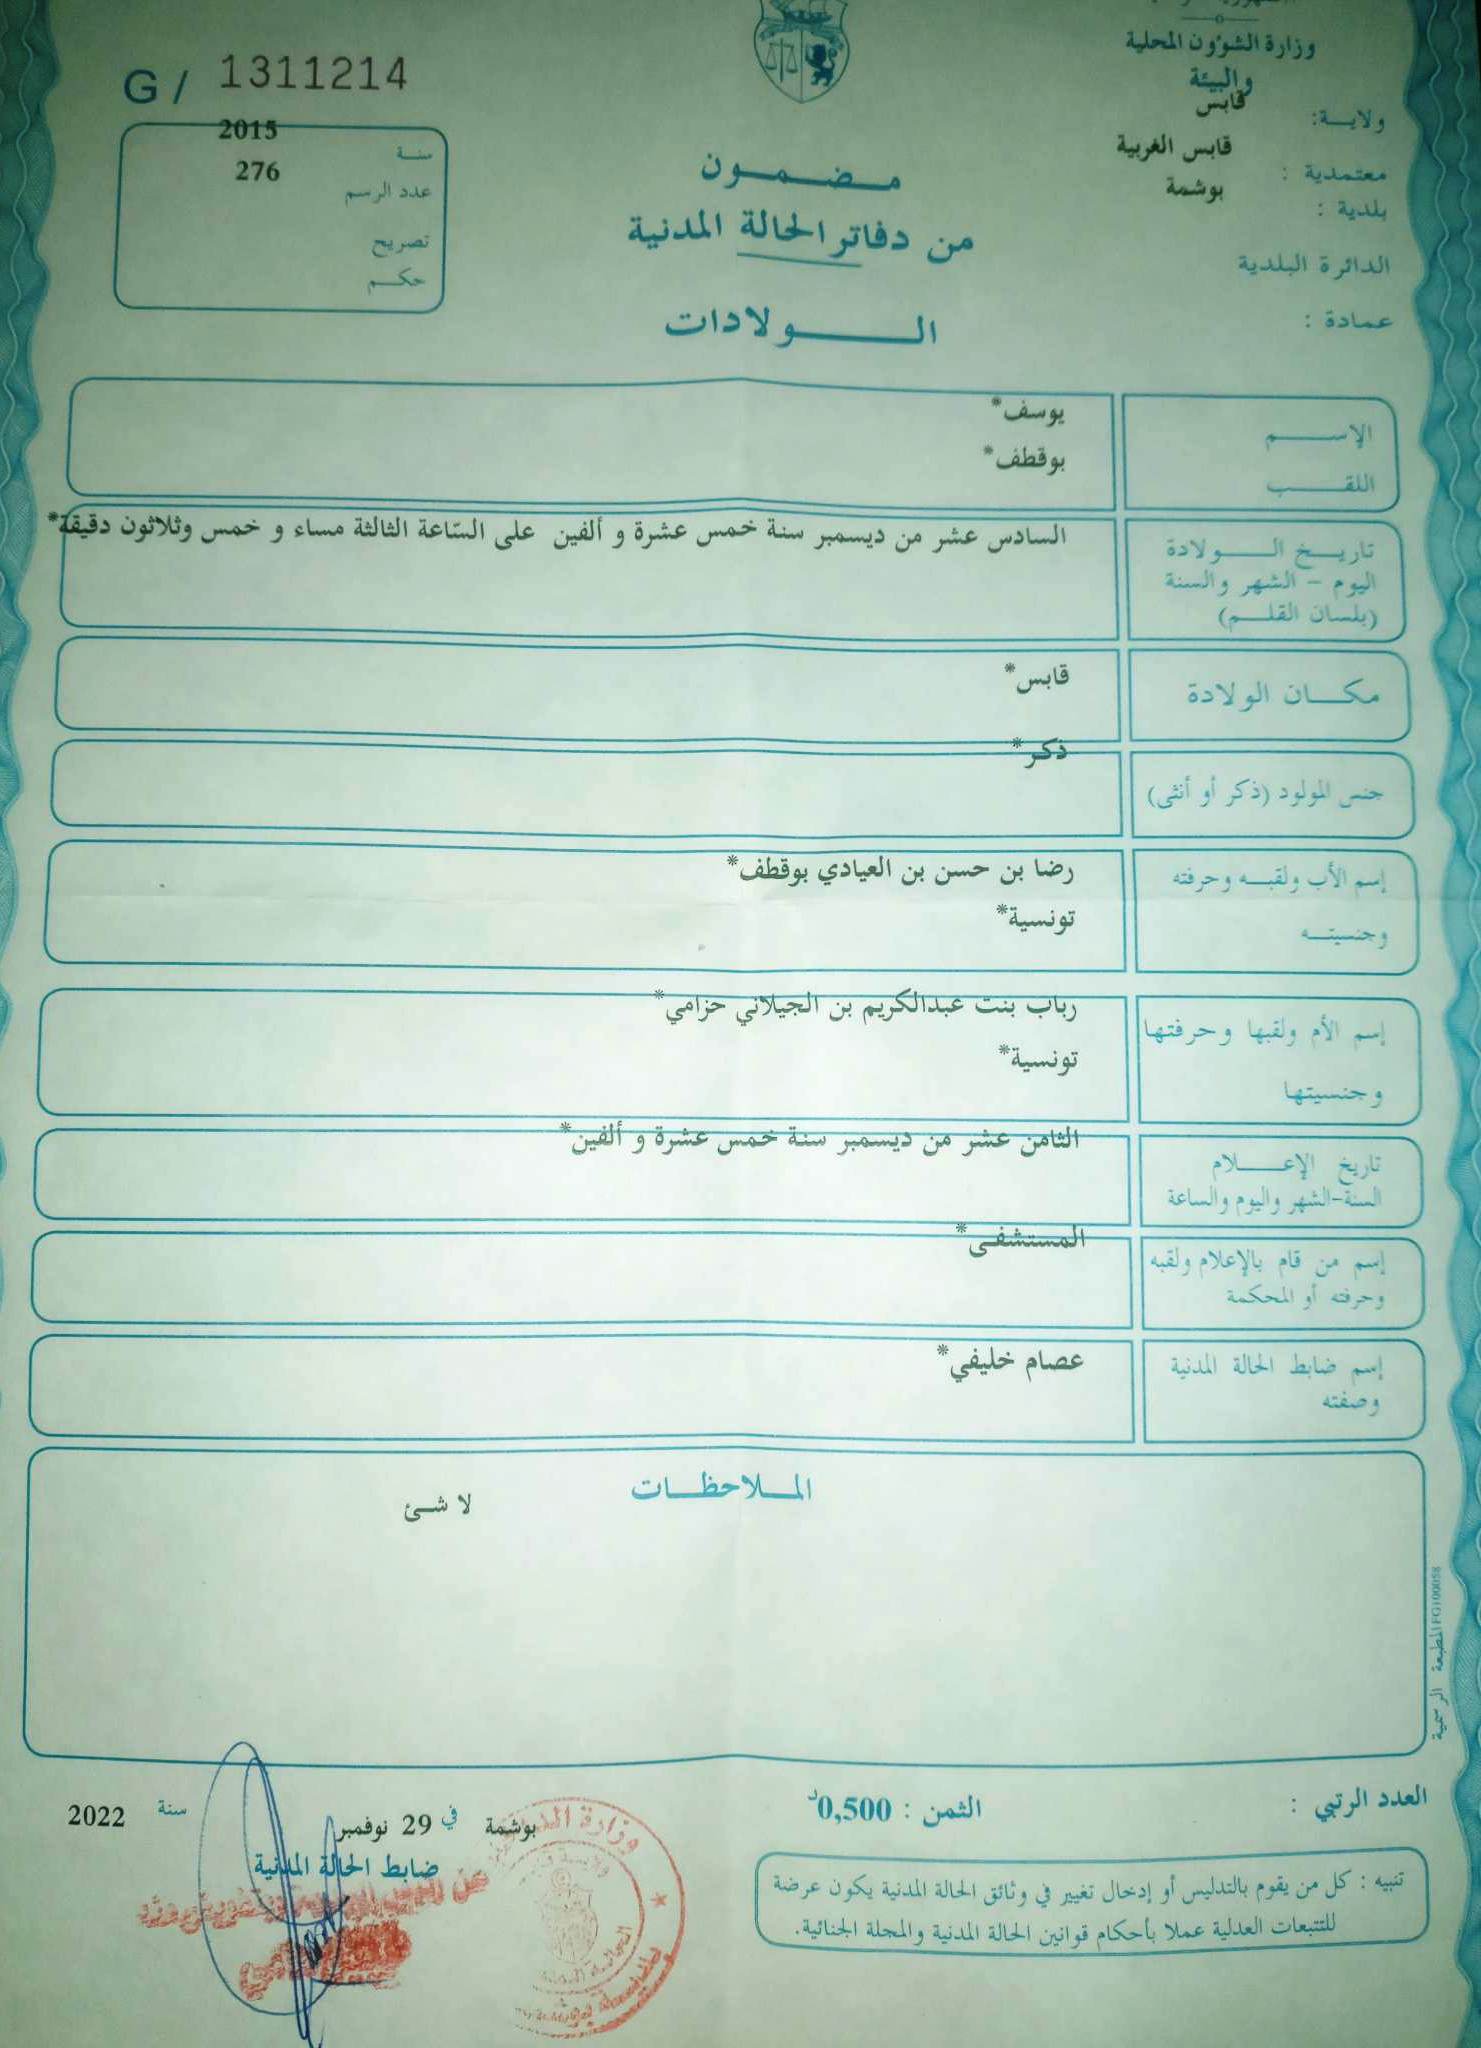 وزارة الشؤون المحلية
والبيئة
ولاية: قابس
معتمدية : قابس الغربية
بلدية : بوشمة
الدائرة البلدية
عمادة :
G / 1311214
سنة 2015
عدد الرسم 276
تصريح
حكم
مضمون
من دفاتر الحالة المدنية
الولادات
الإسم يوسف*
اللقب بوقطف*
تاريخ الولادة
اليوم - الشهر والسنة
(بلسان القلم)
السادس عشر من ديسمبر سنة خمس عشرة و ألفين على السّاعة الثالثة مساء و خمس وثلاثون دقيقة*
مكان الولادة قابس*
جنس المولود (ذكر أو أنثى) ذكر*
إسم الأب ولقبه وحرفته رضا بن حسن بن العيادي بوقطف*
وجنسيته تونسية*
إسم الأم ولقبها وحرفتها رباب بنت عبدالكريم بن الجيلاني حزامي*
وجنسيتها تونسية*
تاريخ الإعلام
السنة-الشهر واليوم والساعة
الثامن عشر من ديسمبر سنة خمس عشرة و ألفين*
إسم من قام بالإعلام ولقبه
وحرفته أو المحكمة
المستشفى*
إسم ضابط الحالة المدنية
وصفته
عصام خليفي*
الملاحظات
لا شئ
المطبعة الرسمية FG100058
العدد الرتبي :
الثمن : 0,500د
بوشمة في 29 نوفمبر سنة 2022
ضابط الحالة المدنية
تنبيه : كل من يقوم بالتدليس أو إدخال تغيير في وثائق الحالة المدنية يكون عرضة
للتتبعات العدلية عملا بأحكام قوانين الحالة المدنية والمجلة الجنائية.
وزارة